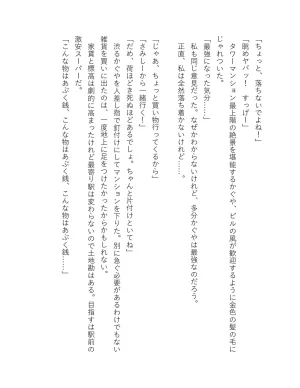 「ちょっと、落ちないでよね！」
「眺めヤバッ！　すっげー！」
タワーマンション最上階の絶景を堪能するかぐや、ビルの風が歓迎するように金色の髪の毛に
じゃれついた。
「最強になった気分……！」
私も同じ意見だった。なぜかわからないけれど、多分かぐやは最強なのだろう。
正直、私は全然落ち着かないけれど……。
「じゃあ、ちょっと買い物行ってくるから」
「さみしーから一緒に行く！」
「だめ、荷ほどき死ぬほどあるでしょ。ちゃんと片付けといてね」
渋るかぐやを人差し指で釘付けにしてマンションを下りた。別に急ぐ必要があるわけでもない
雑貨を買いに出たのは、一度地上に足をつけたかったからかもしれない。
家賃と標高は劇的に高まったけれど最寄り駅は変わらないので土地勘はある。目指すは駅前の
激安スーパーだ。
「こんな物はあぶく銭、こんな物はあぶく銭、こんな物はあぶく銭……」